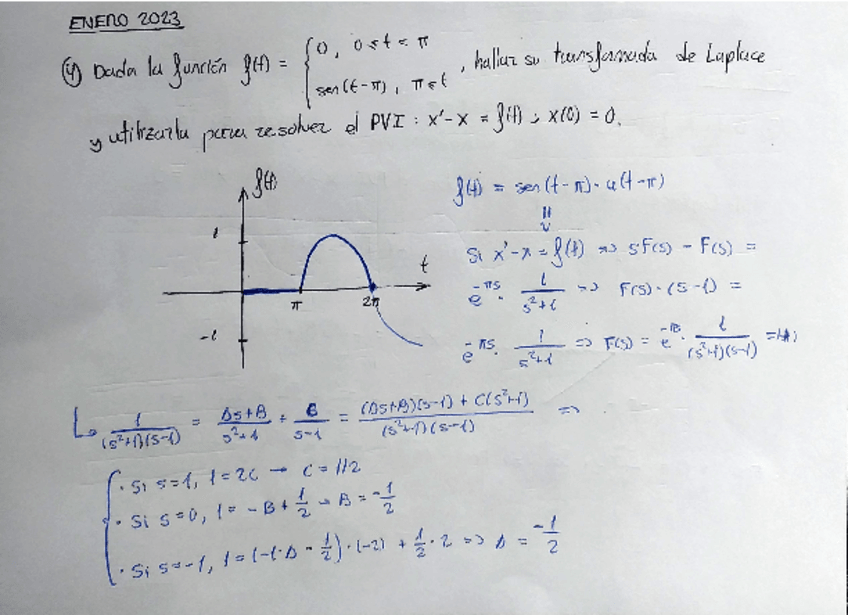 ENERO 2023
④ Dada la función f(t) = { 0, 0 ≤ t < π
sen(t-π), π ≤ t
, hallar su transformada de Laplace
y utilizarla para resolver el PVI: x'-x = f(t); x(0) = 0.
f(t)
1
t
π
2π
-1
f(t) = sen(t-π)·u(t-π)
⇓
Si x'-x = f(t) => sF(s) - F(s) =
e^-πs · 1/(s²+1) => F(s)·(s-1) =
e^-πs · 1/(s²+1) => F(s) = e^-πs · 1/((s²+1)(s-1))
1/((s²+1)(s-1)) = (As+B)/(s²+1) + C/(s-1) = ((As+B)(s-1) + C(s²+1))/((s²+1)(s-1)) =>
· Si s=1, 1=2C → C = 1/2
· Si s=0, 1 = -B + 1/2 → B = -1/2
· Si s=-1, 1 = (-1·A - 1/2)·(-2) + 1/2 · 2 => A = -1/2